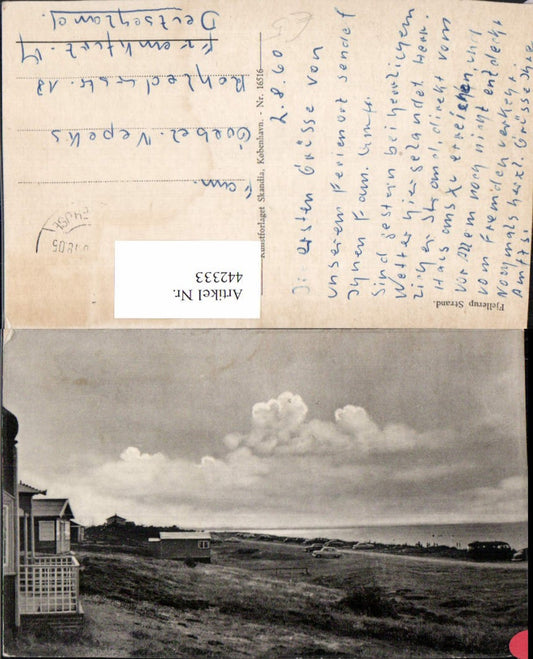 Fjellerup Strand.
2.8.60
Die ersten Grüsse von
unserem Ferienort sendet
Ihnen Fam.
Sind gestern bei herrlichem
Wetter hier gelandet. Herr-
licher Strand, direkt vom
Haus aus zu erreichen, und
vor allem noch nicht entdeckt
vom Fremdenverkehr.
Nochmals herzl. Grüsse Ihre
Kunstforlaget Skandia, København. - Nr. 16516
Fam.
Goebel.
Str. 18
Frankfurt.
Deutschland
Artikel Nr.
442333